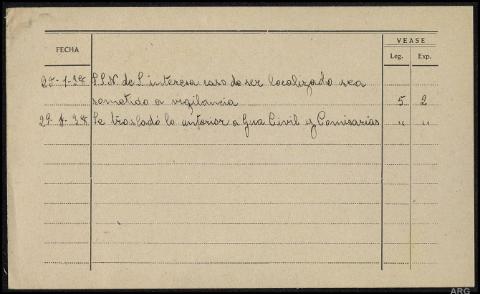 VEASE
FECHA Leg. Exp.
S.I.N. de S. interesa caso de ser localizado sea
sometido a vigilancia 5 2
Se trasladó lo anterior a Gua Civil y Comisarías " "
ARG